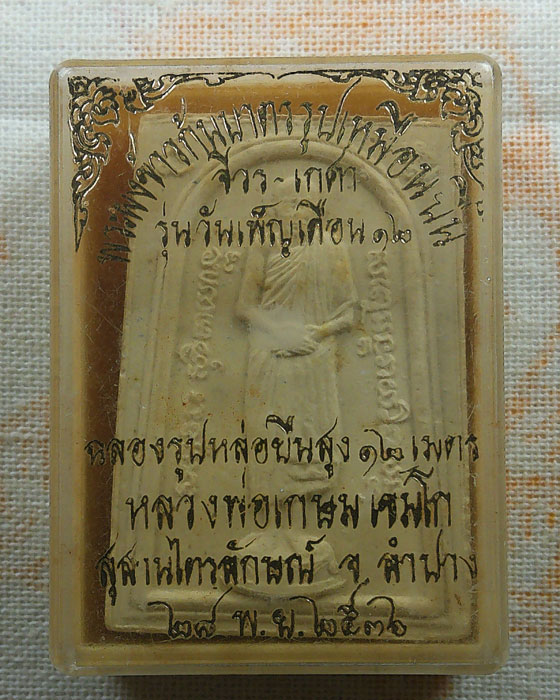 พระผงข้าวก้นบาตรรูปเหมือนยืน
จีวร-เกศา
รุ่นวันเพ็ญเดือน ๑๒
ฉลองรูปหล่อยืนสูง ๑๒ เมตร
หลวงพ่อเกษม เขมโก
สุสานไตรลักษณ์ จ. ลำปาง
๒๘ พ.ย. ๒๕๓๖